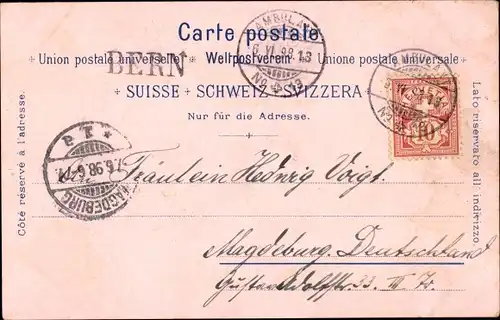 Carte postale
Union postale universelle Weltpostverein Unione postale universale
BERN
AMBULANT
6. VI. 98. 13
No 13
SUISSE SCHWEIZ SVIZZERA
Nur für die Adresse.
Côté réservé à l'adresse.
Lato riservato all' indirizzo.
10
P T *
7.6.98.6-7
MAGDEBURG
Fräulein Hedwig Voigt.
Magdeburg. Deutschland
Gustav Adolfstr. 33. III